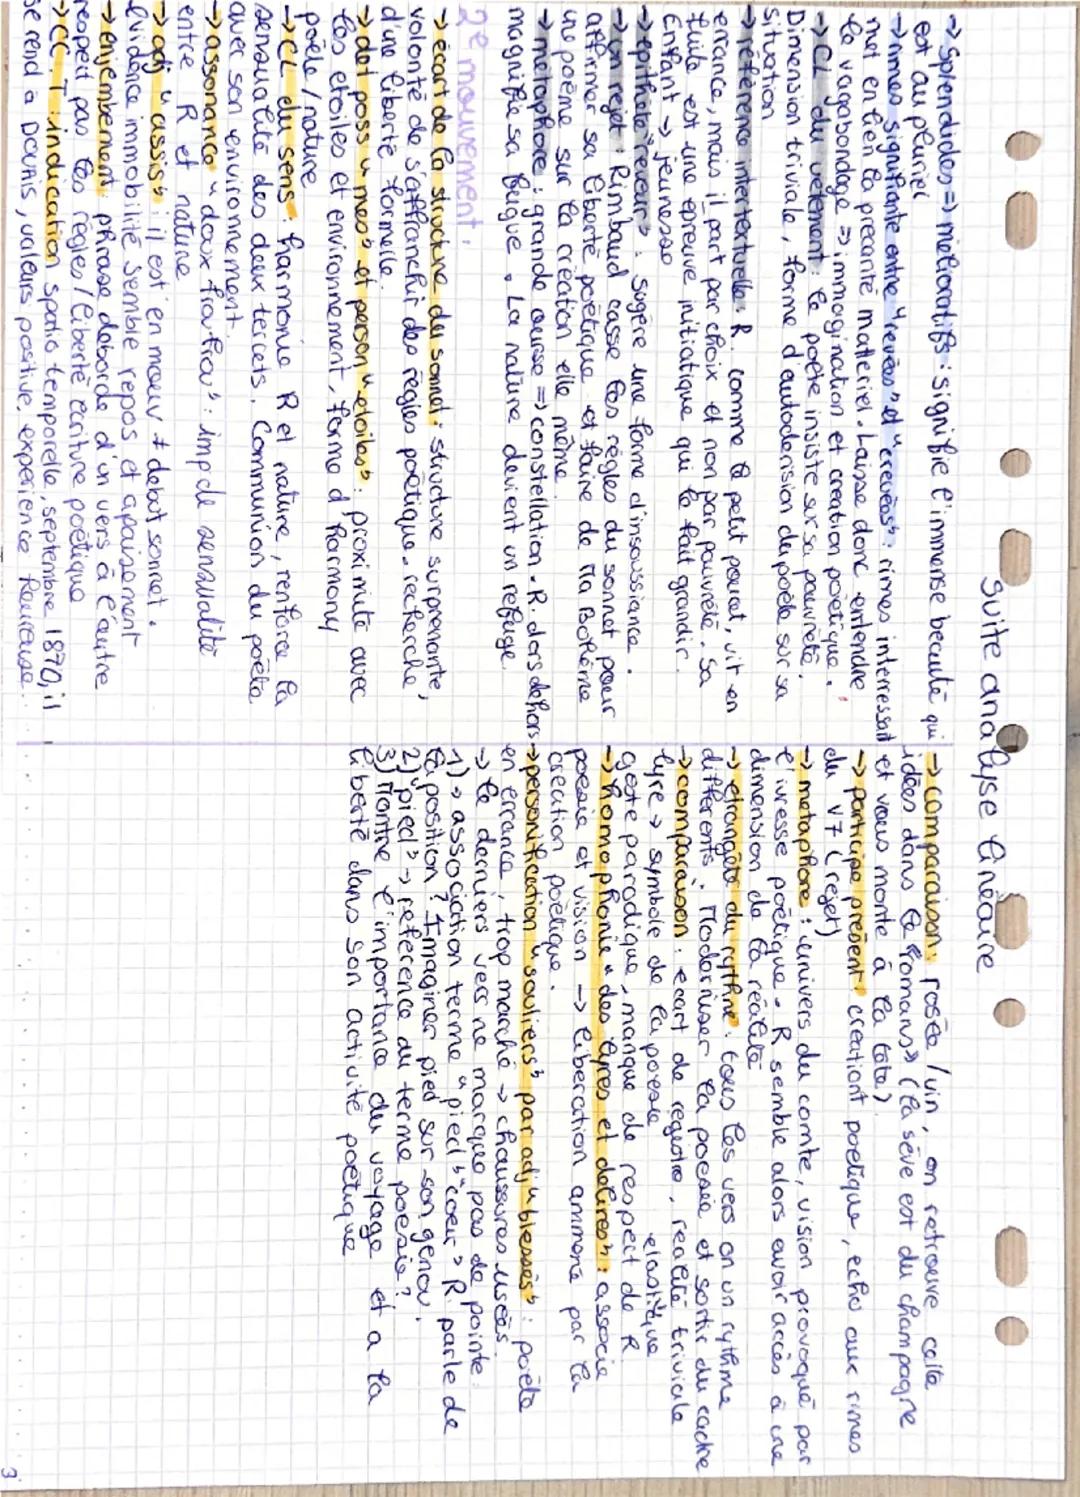 suite analyse linéaire
-> Splendides => mélioratifs : signifie l'immense beauté qui
est au pluriel
-> rimes signifiante entre "rêvées" et "crevées" : rimes interressant
met en lien la précarité matteriel. Laisse donc entendre
le vagabondage => immagination et creation poétique.
-> CL du vetement : le poète insiste sur sa pauvreté.
Dimension triviale, forme d'autoderision du poète sur sa
situation
-> référence intertextuelle : R. comme le petit poucet, vit en
errance, mais il part par choix et non par pauvreté. Sa
fuite est une épreuve initiatique qui le fait grandir.
Enfant -> jeunesse
-> epithète "rêveur" : Sugère une forme d'insoussiance.
-> un rejet : Rimbaud casse les règles du sonnet pour
affirmer sa liberté poétique et faire de Ma Bohème
un poème sur la création elle même.
-> metaphore : grande ourse => constellation. R. dors dehors
magnifie sa fugue. La nature devient un refuge.
2e mouvement :
-> écart de la structure du sonnet : structure surprenante,
volonté de s'affranchir des règles poétique. recherche
d'une liberté formelle.
-> det poss "mes" et person "étoiles" : proximité avec
les étoiles et environnement, forme d'harmony
poète / nature
-> CL du sens : harmonie R et nature, renforce la
sensualité des deux tercets. Communion du poète
avec son environnement.
-> assonance "doux frou-frou" : imp de sensualité
entre R et nature
-> adj "assis" : il est en mouv ≠ debut sonnet.
évidence immobilité semble repos et apaisement
-> enjembement : phrase deborde d'un vers à l'autre
respect pas les règles / liberté écriture poétique
-> CC. T : indication spatio temporelle, septembre 1870, il
se rend à Douais, valeurs positive, expérience heureuse.
-> comparaison : rosée / vin, on retrouve cette
idées dans le "roman" (la sève est du champagne
et vous monte à la tete)
-> participe présent : creationt poetique, echo aux rimes
du v7 (rejet)
-> metaphore : univers du comte, vision provoqué par
l'ivresse poétique. R semble alors avoir accès à une
dimension de la réalité
-> etrangète du rythme : tous les vers on un rythme
différents. Moderniser la poésie et sortir du cadre
-> comparaison : écart de registre, realité triviale
lyre -> symbole de la poesie elastique
geste parodique, manque de respect de R
-> homophonie "des lyres et délires" : associe
poesie et vision -> liberation ammené par la
création poétique.
-> personification "souliers" par adj "blessés" : poète
en errance, trop marché -> chaussures usées.
-> le derniers vers ne marque pas de pointe :
1) -> association terme "pied" "coeur" > R. parle de
la position ? Imaginer pied sur son genou.
2) "pied" -> reférence au terme poesie ?
3) Montre l'importance du voyage et a la
liberté dans son activité poétique
3